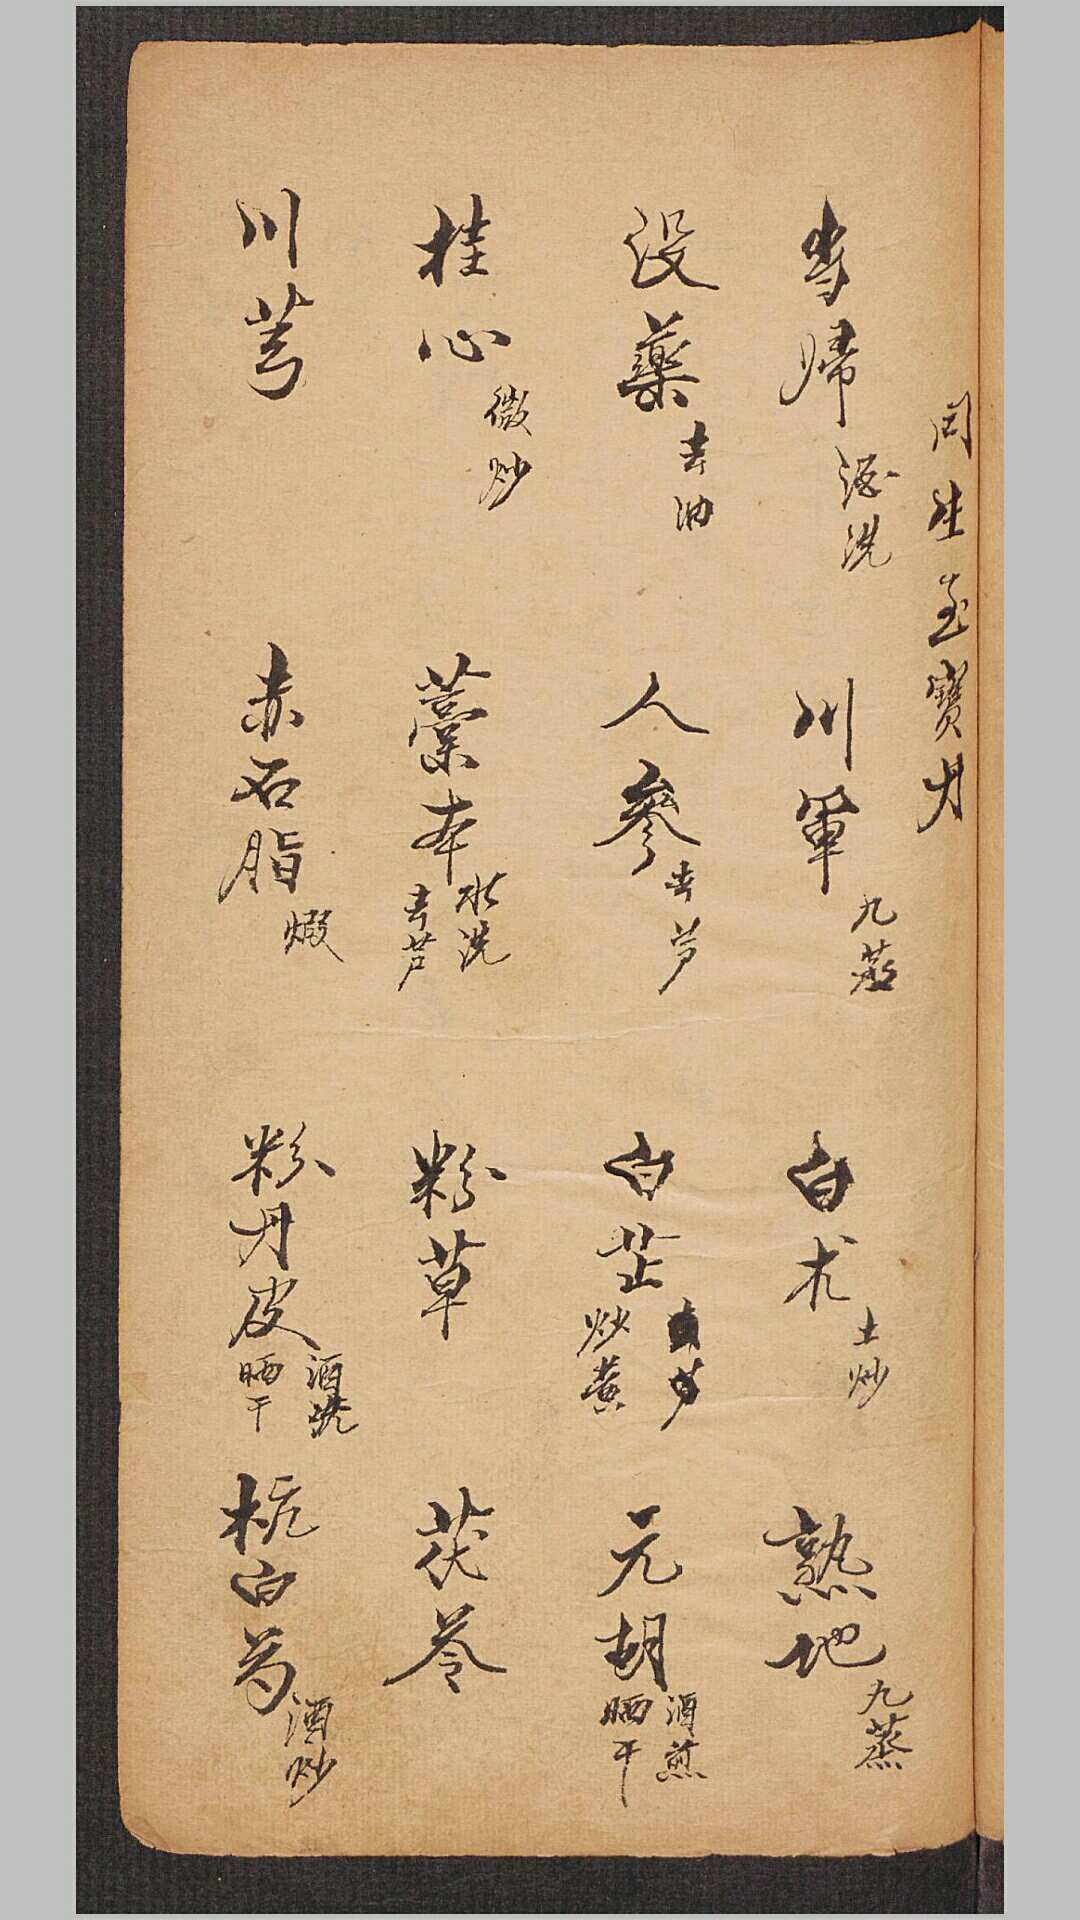 囘生至寶丹
当帰 酒洗 川軍 九蒸 白朮 土炒 熟地 九蒸
没藥 去油 人參 去芦 白芷 炒黄 元胡 酒煎晒干
桂心 微炒 藁本 水洗去芦 粉草 茯苓
川芎 赤石脂 煅 粉丹皮 酒洗晒干 杭白芍 酒炒